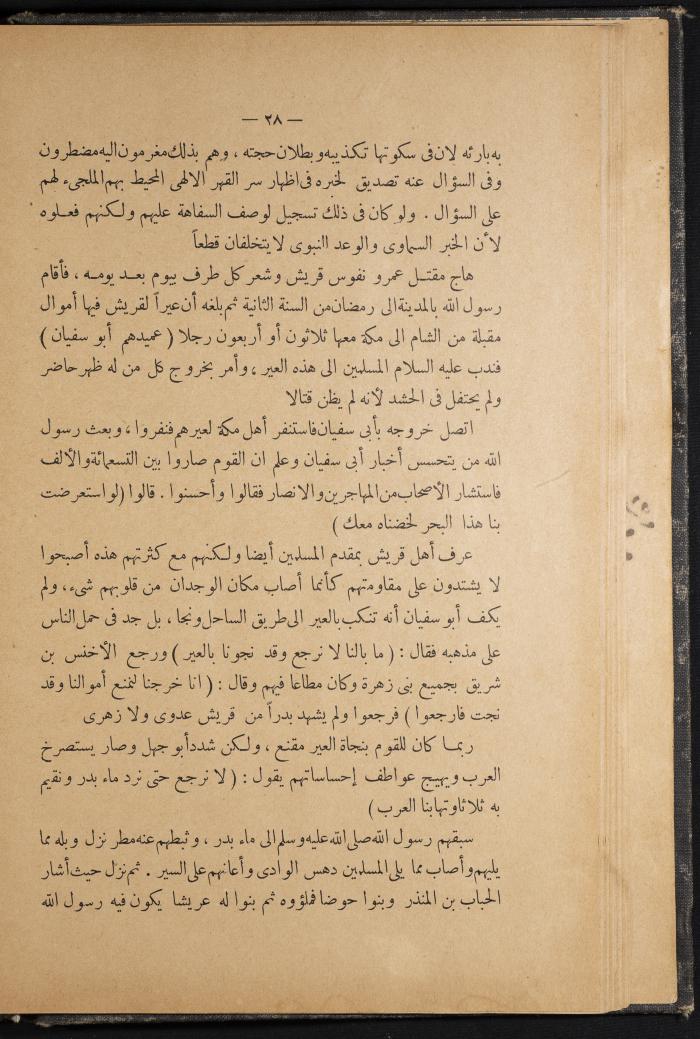 — ٢٨ —
به بارئه لان فى سكوتها تكذيبه وبطلان حجته ، وهم بذلك مغرمون اليه مضطرون
وفى السؤال عنه تصديق لخبره فى اظهار سر القهر الالهى المحيط بهم الملجىء لهم
على السؤال . ولو كان فى ذلك تسجيل لوصف السفاهة عليهم ولكنهم فعلوه
لأن الخبر السماوى والوعد النبوى لا يتخلفان قطعاً
هاج مقتل عمرو نفوس قريش وشعر كل طرف بيوم بعد يومه ، فأقام
رسول الله بالمدينة الى رمضان من السنة الثانية ثم بلغه أن عيراً لقريش فيها أموال
مقبلة من الشام الى مكة معها ثلاثون أو أربعون رجلا ( عميدهم أبو سفيان )
فندب عليه السلام المسلمين الى هذه العير ، وأمر بخروج كل من له ظهر حاضر
ولم يحتفل فى الحشد لأنه لم يظن قتالا
اتصل خروجه بأبى سفيان فاستنفر أهل مكة لعيرهم فنفروا ، وبعث رسول
الله من يتحسس أخبار أبى سفيان وعلم ان القوم صاروا بين التسعمائة والألف
فاستشار الأصحاب من المهاجرين والانصار فقالوا وأحسنوا . قالوا (لو استعرضت
بنا هذا البحر لخضناه معك )
عرف أهل قريش بمقدم المسلمين أيضا ولكنهم مع كثرتهم هذه أصبحوا
لا يشتدون على مقاومتهم كأنما أصاب مكان الوجدان من قلوبهم شىء، ولم
يكف أبو سفيان أنه تنكب بالعير الى طريق الساحل ونجا ، بل جد فى حمل الناس
على مذهبه فقال : ( ما بالنا لا نرجع وقد نجونا بالعير ) ورجع الأخنس بن
شريق بجميع بنى زهرة وكان مطاعا فيهم وقال : ( انا خرجنا لنمنع أموالنا وقد
نجت فارجعوا ) فرجعوا ولم يشهد بدراً من قريش عدوى ولا زهرى
ربما كان للقوم بنجاة العير مقنع ، ولكن شدد أبو جهل وصار يستصرخ
العرب ويهيج عواطف إحساساتهم يقول : ( لا نرجع حتى نرد ماء بدر ونقيم
به ثلاثا وتهابنا العرب )
سبقهم رسول الله صلى الله عليه وسلم الى ماء بدر ، وثبطهم عنه مطر نزل وبله مما
يليهم وأصاب مما يلى المسلمين دهس الوادى وأعانهم على السير . ثم نزل حيث أشار
الحباب بن المنذر وبنوا حوضا فملؤوه ثم بنوا له عريشا يكون فيه رسول الله